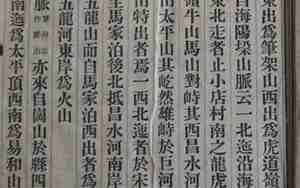 東出為筆架山西出為虎道嶺
自海陽垛山脈云一北迤沿海
東北走者止小店村南之龍虎
嶺牛山馬山對峙其西北出者
出太平山其屹然雄峙於巨河
出特出者焉一西北迤者於宋
生馬家泊後北抵昌水河南岸
五龍山而自馬家泊西出者為
五龍河東岸為火山
亦來自崗山於縣四
南迤為太平頂西南為易和山